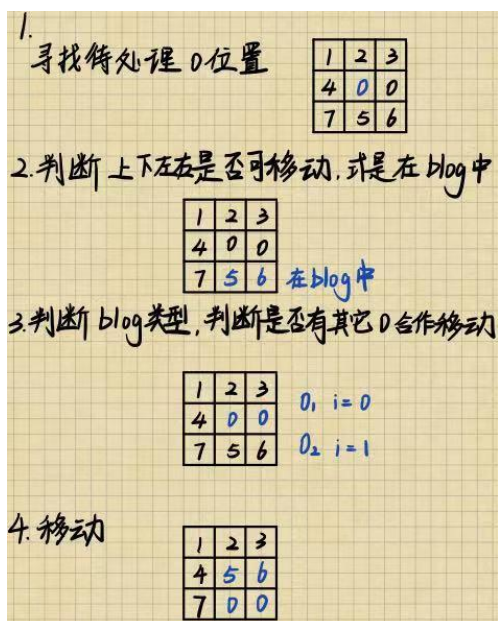 1.
寻找待处理 0位置
1 2 3
4 0 0
7 5 6
2.判断 上下左右是否可移动,或是在 blog中
1 2 3
4 0 0
7 5 6 在blog中
3.判断 blog类型,判断是否有其它 0合作移动
1 2 3
4 0 0 0₁ i=0
7 5 6 0₂ i=1
4.移动
1 2 3
4 5 6
7 0 0